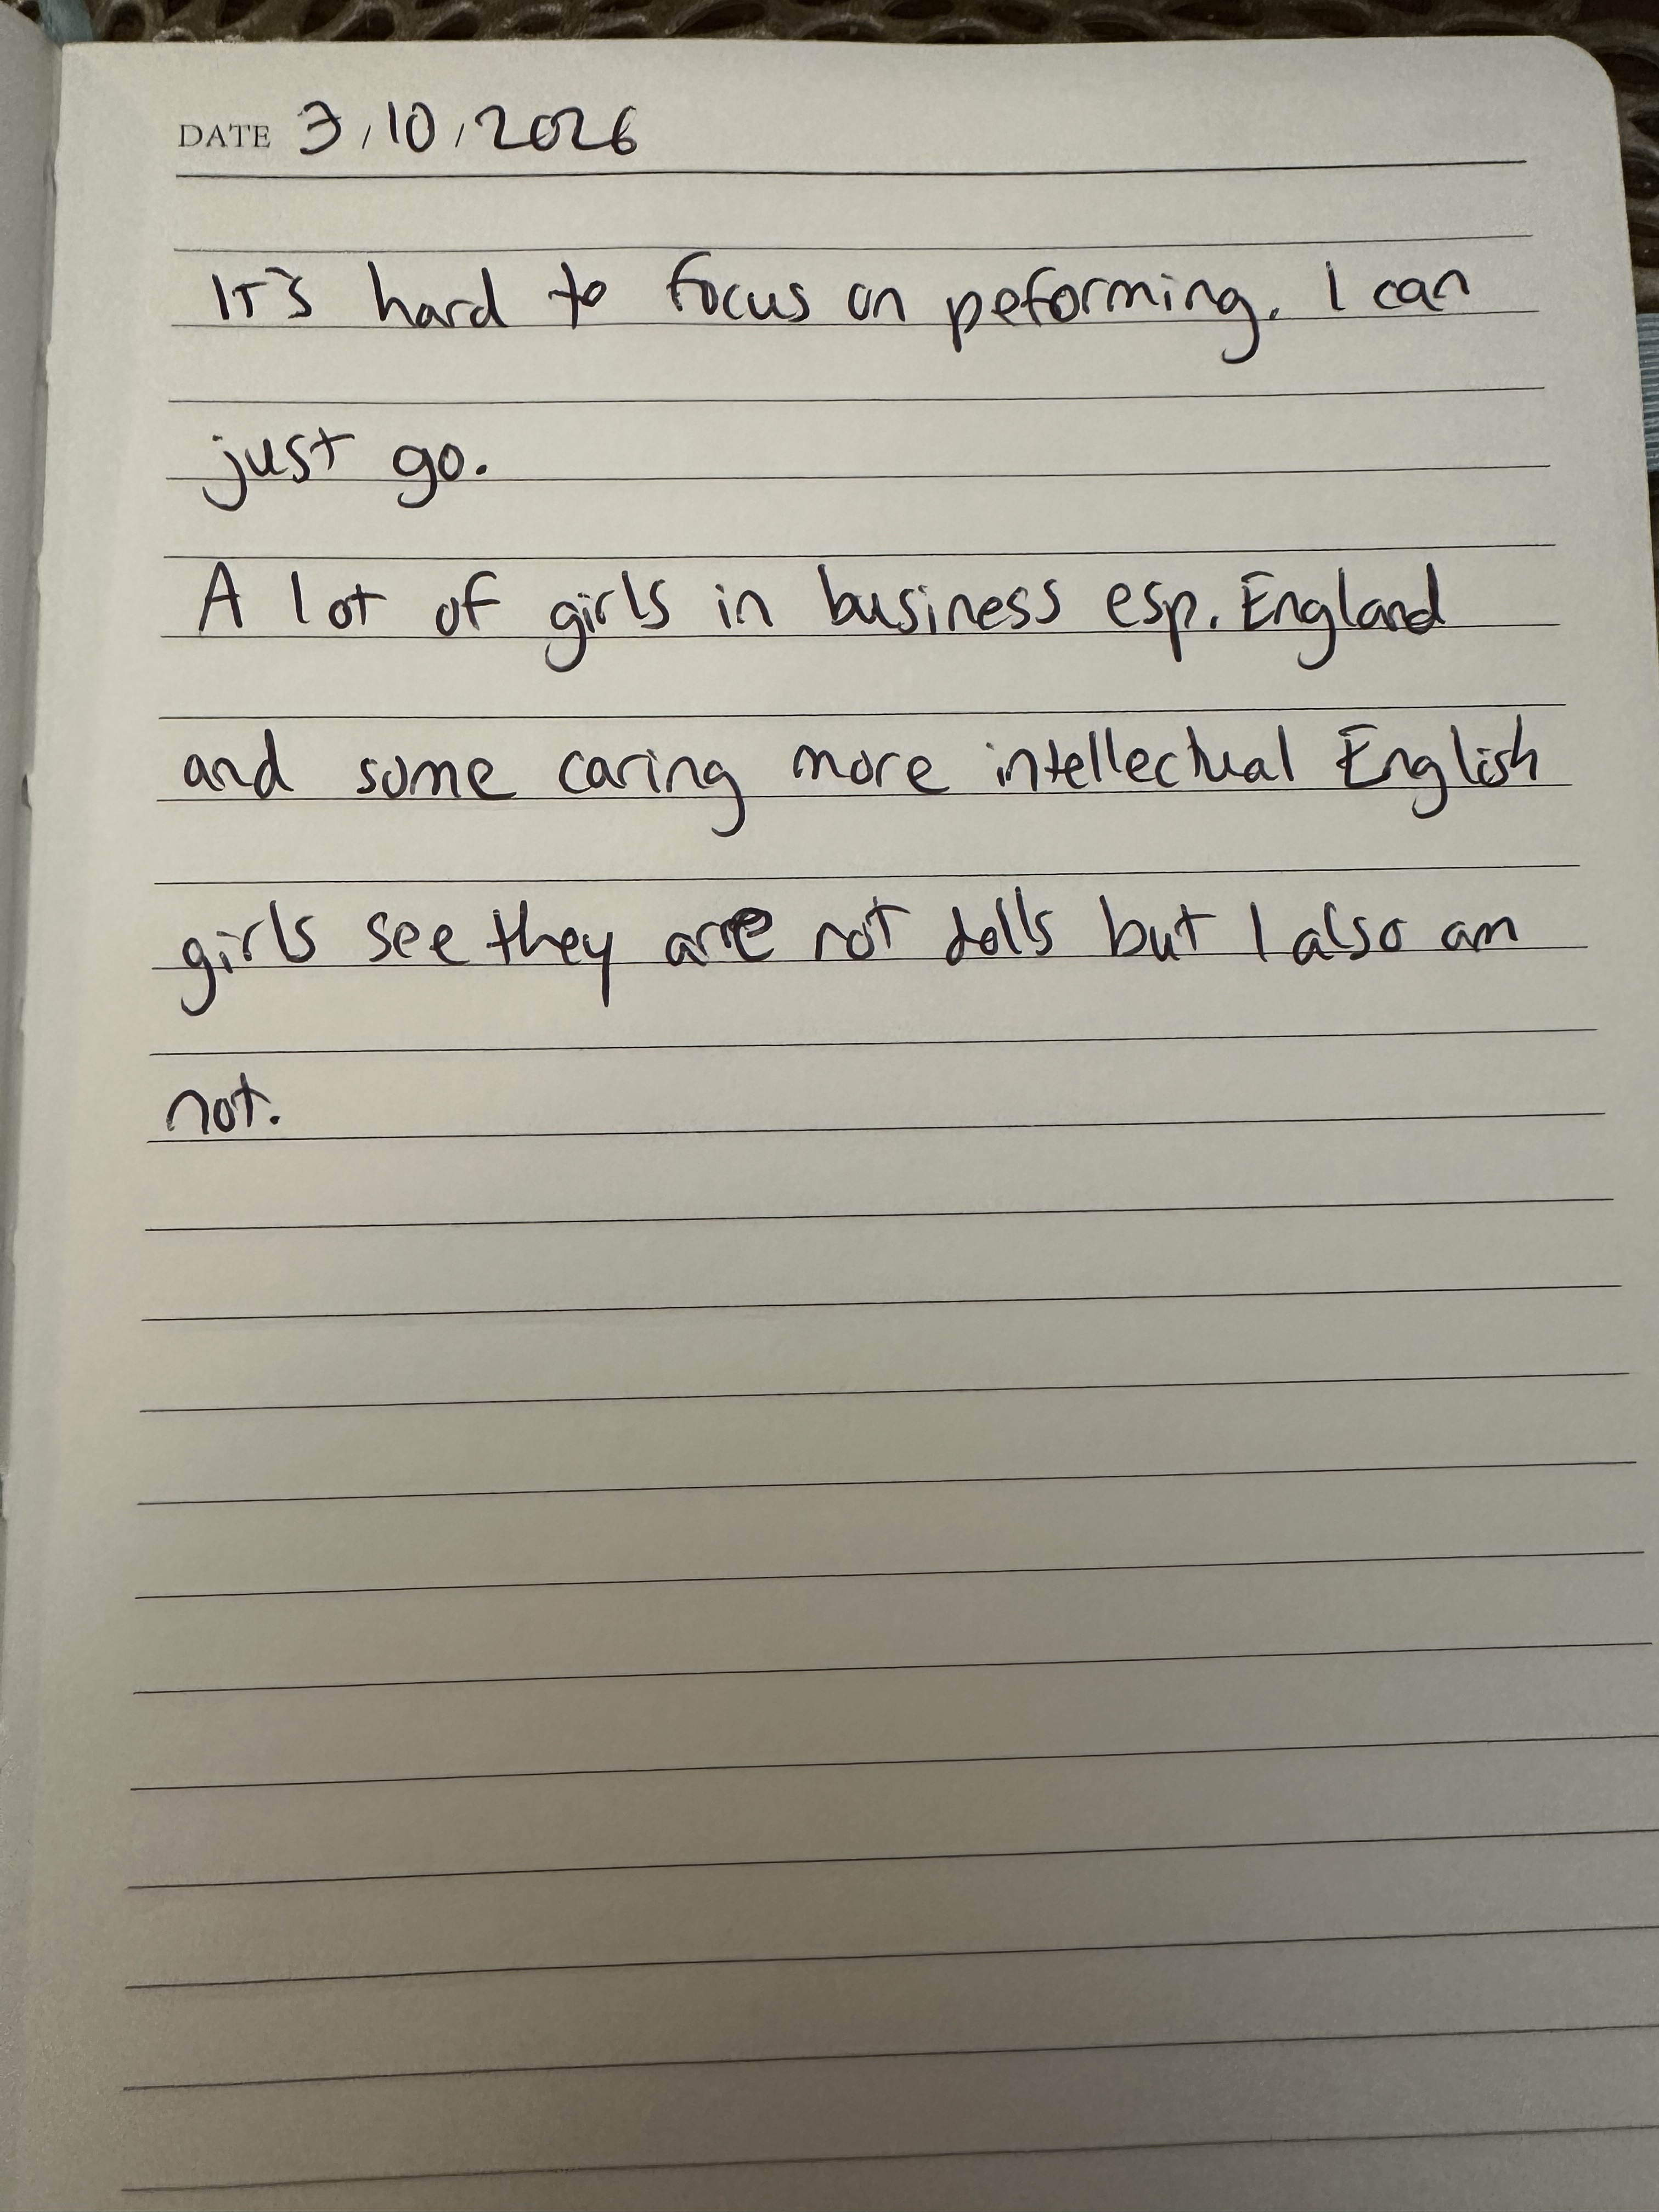 DATE 3/10/2026
IT's hard to focus on peforming. I can
just go.
A lot of girls in business esp. England
and some caring more intellectual English
girls see they are not dolls but I also am
not.